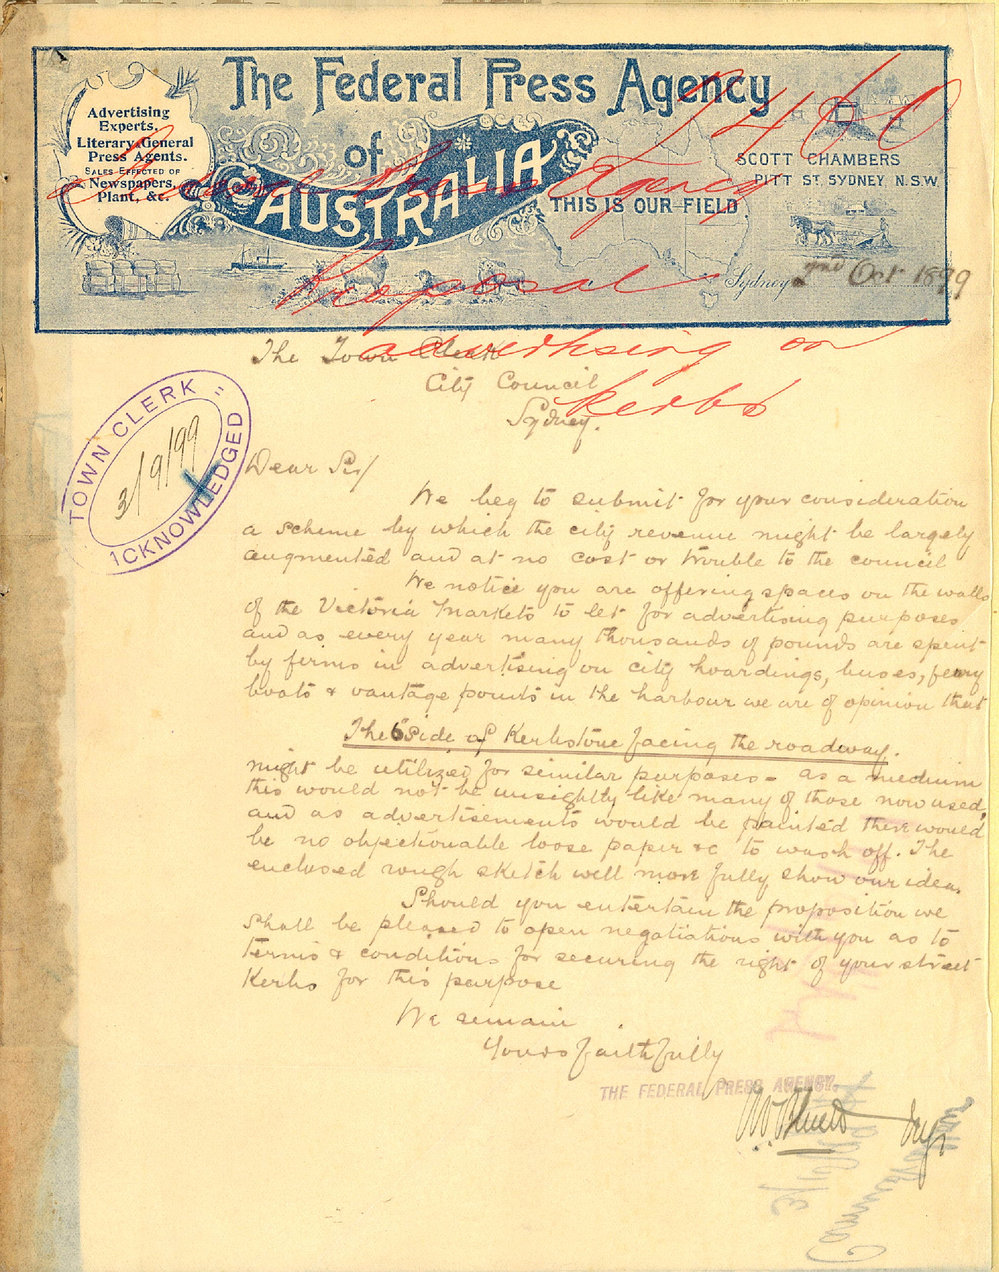 The Federal Press Agency
of
AUSTRALIA
Advertising
Experts.
Literary & General
Press Agents.
SALES EFFECTED OF
Newspapers,
Plant, &c.
SCOTT CHAMBERS
PITT ST. SYDNEY N.S.W.
THIS IS OUR FIELD
Sydney 2nd Oct 1899
Federal Press Agency
Proposal
advertising on
kerbs
The Town Clerk
City Council
Sydney.
TOWN CLERK
3/9/99
ACKNOWLEDGED
Dear Sir/
We beg to submit for your consideration
a scheme by which the city revenue might be largely
augmented and at no cost or trouble to the council
We notice you are offering spaces on the walls
of the Victoria Markets to let for advertising purposes
and as every year many thousands of pounds are spent
by firms in advertising on city hoardings, buses, ferry
boats & vantage points in the harbour we are of opinion that
The 6 Side of Kerbstone facing the roadway.
might be utilized for similar purposes - as a medium
this would not be unsightly like many of those now used,
and as advertisements would be painted there would
be no objectionable loose paper &c to wash off. The
enclosed rough sketch will more fully show our idea.
Should you entertain the proposition we
shall be pleased to open negatiations with you as to
terms & conditions for securing the right of your street
Kerbs for this purpose
We remain
Yours faithfully
THE FEDERAL PRESS AGENCY.